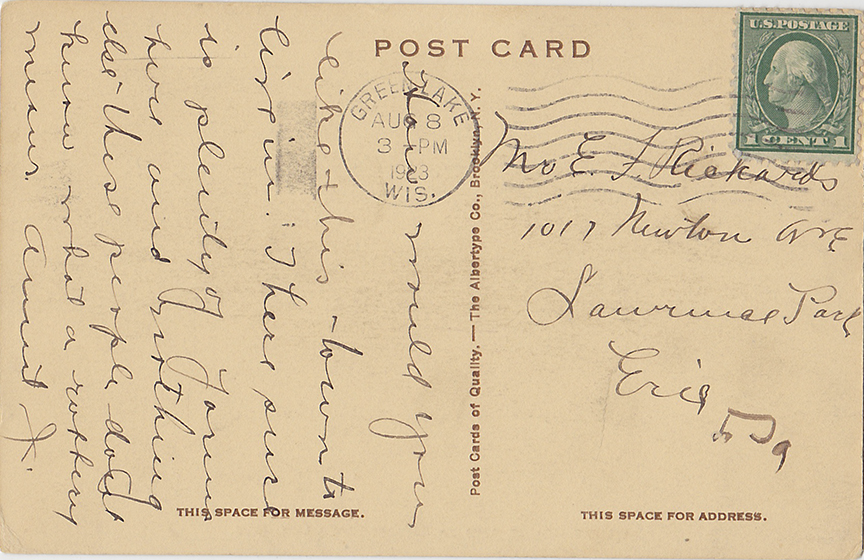 POST CARD
U.S. POSTAGE
1 CENT 1
GREEN LAKE
AUG 8
3 - PM
1923
WIS.
How would you
like this town to
live in. There sure
is plenty of Farms
here and nothing
else these people don't
know what a
means. Aunt J.
Post Cards of Quality. — The Albertype Co., Brooklyn, N. Y.
Mr E. F. Rickards
1017 Newton Ave
Lawrence Park
Erie
Pa
THIS SPACE FOR MESSAGE.
THIS SPACE FOR ADDRESS.